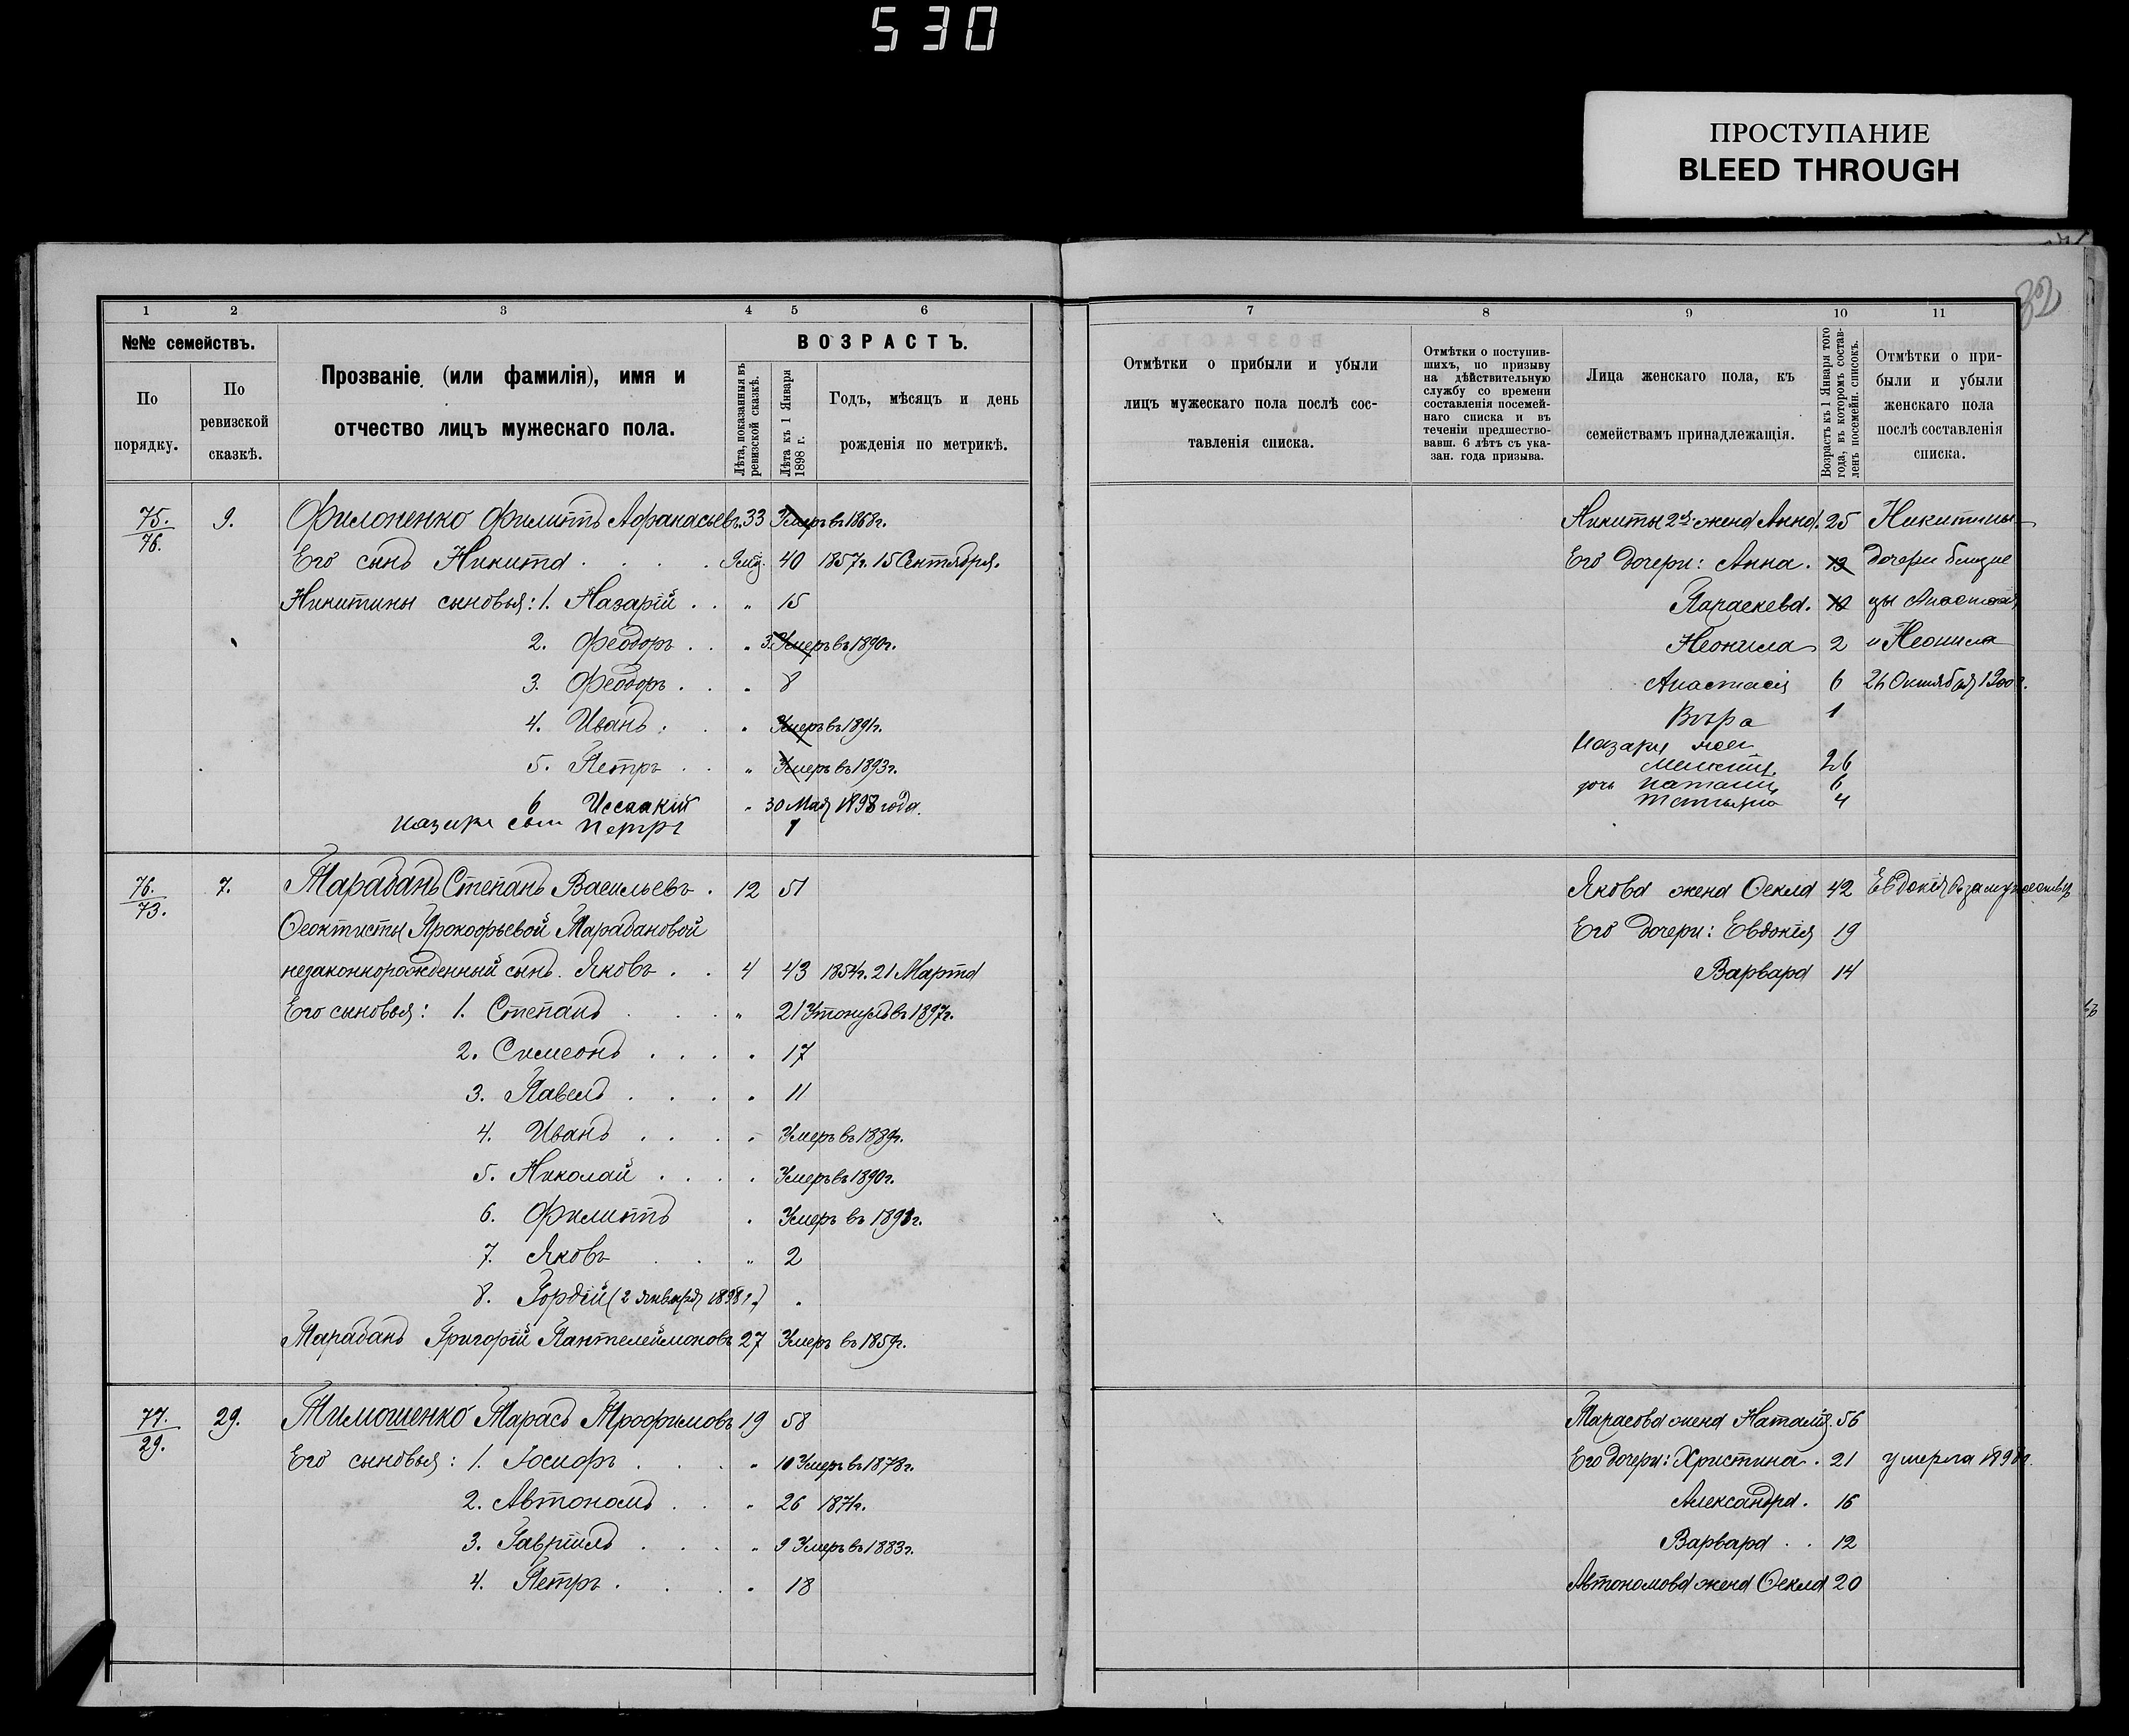 530
ПРОСТУПАНИЕ
BLEED THROUGH
32
1 2 3 4 5 6
№№ семействъ.
По порядку.
По ревизской сказкѣ.
Прозваніе (или фамилія), имя и
отчество лицъ мужескаго пола.
ВОЗРАСТЪ.
Лѣта, показанныя въ ревизской сказкѣ.
Лѣта къ 1 Января 1898 г.
Годъ, мѣсяцъ и день
рожденія по метрикѣ.
75./76. 9. Филоненко Филиппъ Афанасьевъ. 33 Умеръ въ 1868 г.
Его сынъ Никита 40 1857 г. 15 Сентября.
Никитины сыновья: 1. Назарій „ 15
2. Ѳеодоръ „ 3. Умеръ въ 1890 г.
3. Ѳеодоръ „ 8
4. Иванъ „ Умеръ въ 1891 г.
5. Петръ „ Умеръ въ 1893 г.
6 Иссаакій „ 30 Мая 1898 года.
Назара сын Петръ 1
76./73. 7. Тарабанъ Степанъ Васильевъ. 12 51
Ѳеоктисты Прокофьевой Тарабановой
незаконнорожденный сынъ. Яковъ 4 43 1854 г. 21 Марта
Его сыновья: 1. Степанъ „ 21 Утонулъ въ 1897 г.
2. Симеонъ „ 17
3. Павелъ „ 11
4. Иванъ „ Умеръ въ 1889 г.
5. Николай „ Умеръ въ 1890 г.
6. Филиппъ „ Умеръ въ 1893 г.
7. Яковъ „ 2
8. Гордѣй (2 января 1898 г.) „
Тарабанъ Григорій Пантелеймоновъ 27 Умеръ въ 1859 г.
77./29. 29. Тимошенко Тарасъ Трофимовъ 19 58
Его сыновья: 1. Іосифъ „ 10 Умеръ въ 1878 г.
2. Автономъ „ 26 1871 г.
3. Гавріилъ „ 9 Умеръ въ 1883 г.
4. Петръ „ 18
7 8 9 10 11
Отмѣтки о прибыли и убыли
лицъ мужескаго пола послѣ сос-
тавленія списка.
Отмѣтки о поступив-
шихъ, по призыву
на дѣйствительную
службу со времени
составленія посемей-
наго списка и въ
теченіи предшество-
вавш. 6 лѣтъ съ ука-
зан. года призыва.
Лица женскаго пола, къ
семействамъ принадлежащія.
Возрастъ къ 1 Января того
года, въ которомъ состав-
ленъ посемейн. списокъ.
Отмѣтки о при-
были и убыли
женскаго пола
послѣ составленія
списка.
Никиты 2я жена Анна. 25 Никитины
Его дочери: Анна. 13 дочери близне
Параскева. 10 цы Анастасія
Неонила 2 и Неонила
Анастасія 6 26 Октября 1900 г.
Вѣра 1
Назара жен
26
дочь Наталія 6
Татьяна 4
Якова жена Ѳекла 42 Евдокія въ замужествѣ
Его дочери: Евдокія 19
Варвара 14
Тарасова жена Наталія. 56
Его дочери: Христина. 21 умерла
Александра. 16
Варвара 12
Автономова жена Ѳекла 20